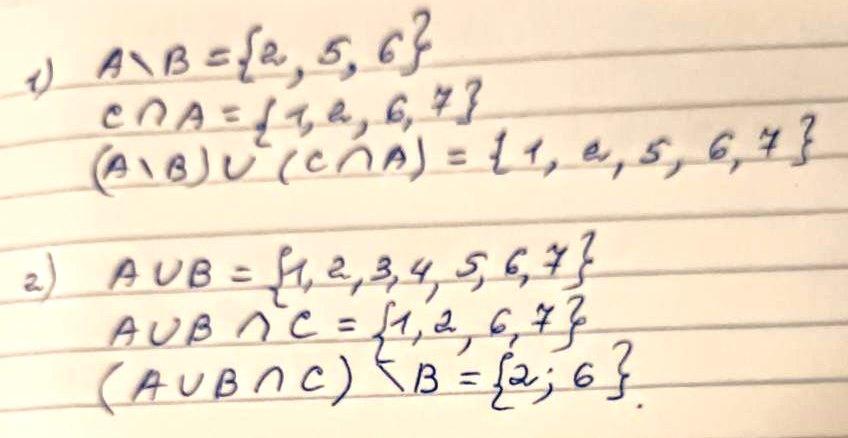 1) A \ B = {2, 5, 6}
C ∩ A = {1, 2, 6, 7}
(A \ B) ∪ (C ∩ A) = {1, 2, 5, 6, 7}
2) A ∪ B = {1, 2, 3, 4, 5, 6, 7}
A ∪ B ∩ C = {1, 2, 6, 7}
(A ∪ B ∩ C) \ B = {2; 6}.